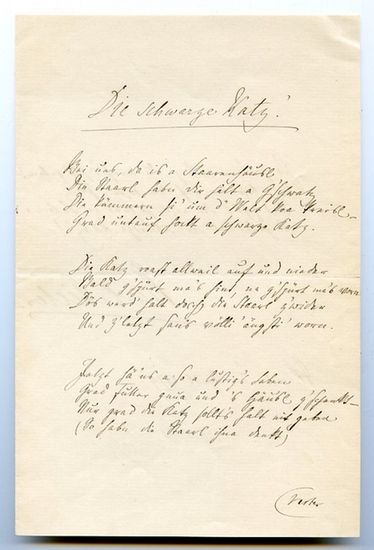 Die schwarze Katz'.
Bei uns, da is a Staarenhäusl
Die Staarl habn dir halt a G'schwatz
Die kümmern si' um d' Welt koa Kreisl
Grad untauf hockt a schwarze Katz.
Die Katz roast allweil auf und nieder
Bald g'spürt ma's hint, na g'spürt ma's vorn
Dös werd halt do die Staarl z'wider
Und z'letzt sans völli' ängsti' worn.
Jetzt hä'ns a so a lustigs Leben
Grad Futter gnua und 's Häusl g'schenkt
Nur grad die Katz sollt's halt nit geben
(So habn die Staarl ihna denkt)